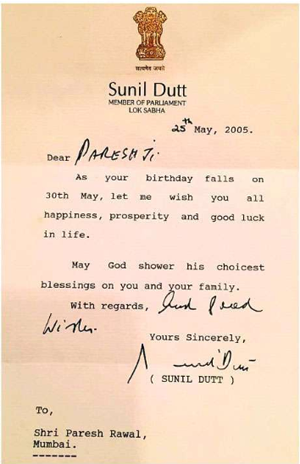 सत्यमेव जयते
Sunil Dutt
MEMBER OF PARLIAMENT
LOK SABHA
25th May, 2005.
Dear PARESH Ji
As your birthday falls on
30th May, let me wish you all
happiness, prosperity and good luck
in life.
May God shower his choicest
blessings on you and your family.
With regards, And Good
Wishes.
Yours Sincerely,
Sunil Dutt
( SUNIL DUTT )
To,
Shri Paresh Rawal,
Mumbai.